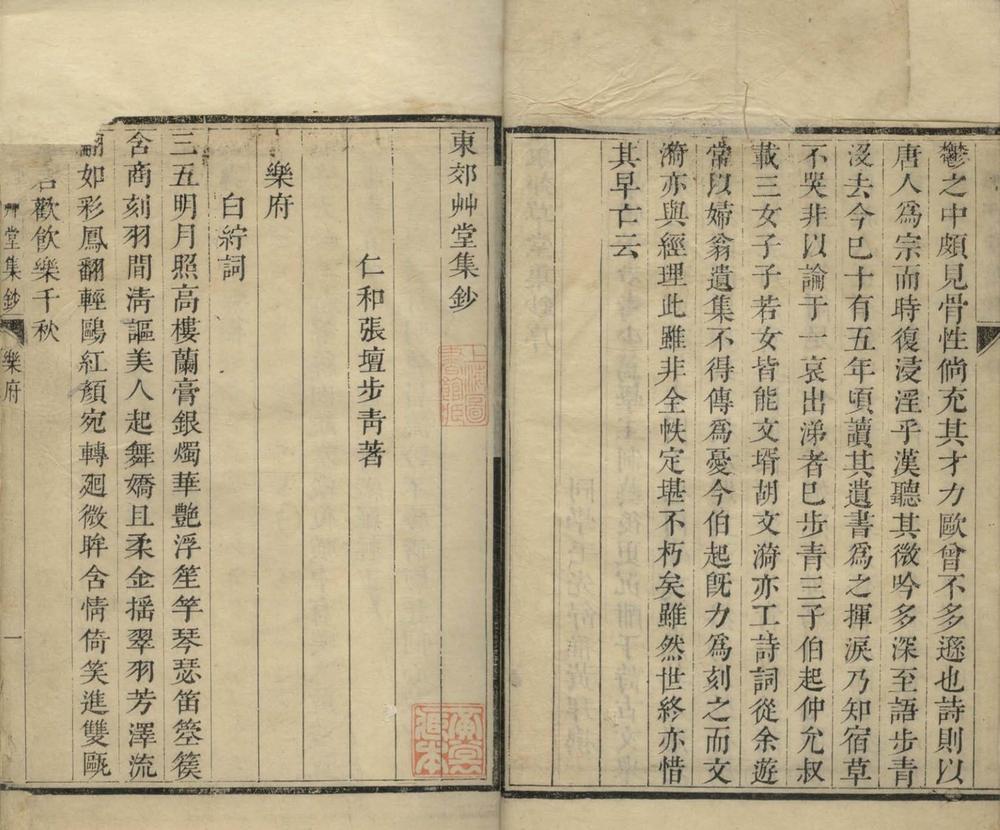 鬱之中頗見骨性倘充其才力歐曾不多遜也詩則以
唐人爲宗而時復浸淫乎漢聽其微吟多深至語步青
沒去今已十有五年頃讀其遺書爲之揮淚乃知宿草
不哭非以論于一哀出涕者已步青三子伯起仲允叔
載三女子子若女皆能文壻胡文漪亦工詩詞從余遊
常以婦翁遺集不得傳爲憂今伯起旣力爲刻之而文
漪亦與經理此雖非全帙定堪不朽矣雖然世終亦惜
其早亡云
東郊艸堂集鈔
仁和張壇步靑著
樂府
白紵詞
三五明月照高樓蘭膏銀燭華艷浮笙竽琴瑟笛箜篌
含商刻羽間淸謳美人起舞嬌且柔金搖翠羽芳澤流
翩如彩鳳翻輕鷗紅顏宛轉廻微眸含情倚笑進雙甌
君歡飮樂千秋
艸堂集鈔
樂府
一
上海圖書館藏